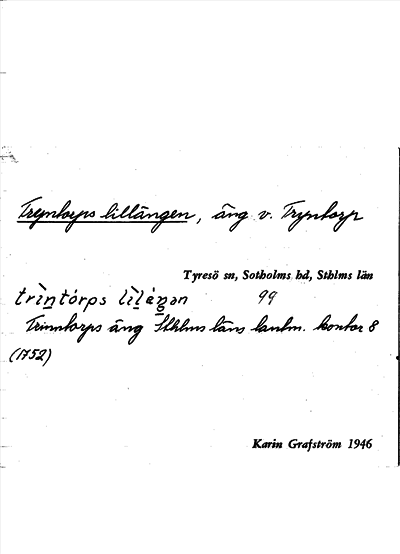 Tryntorps lillängen, äng v. Tryntorp
Tyresö sn, Sotholms hd, Sthlms län
trìntórps lìlèŋən 99
Trinntorps äng Sthlms läns lantm. kontor 8
(1752)
Karin Grafström 1946